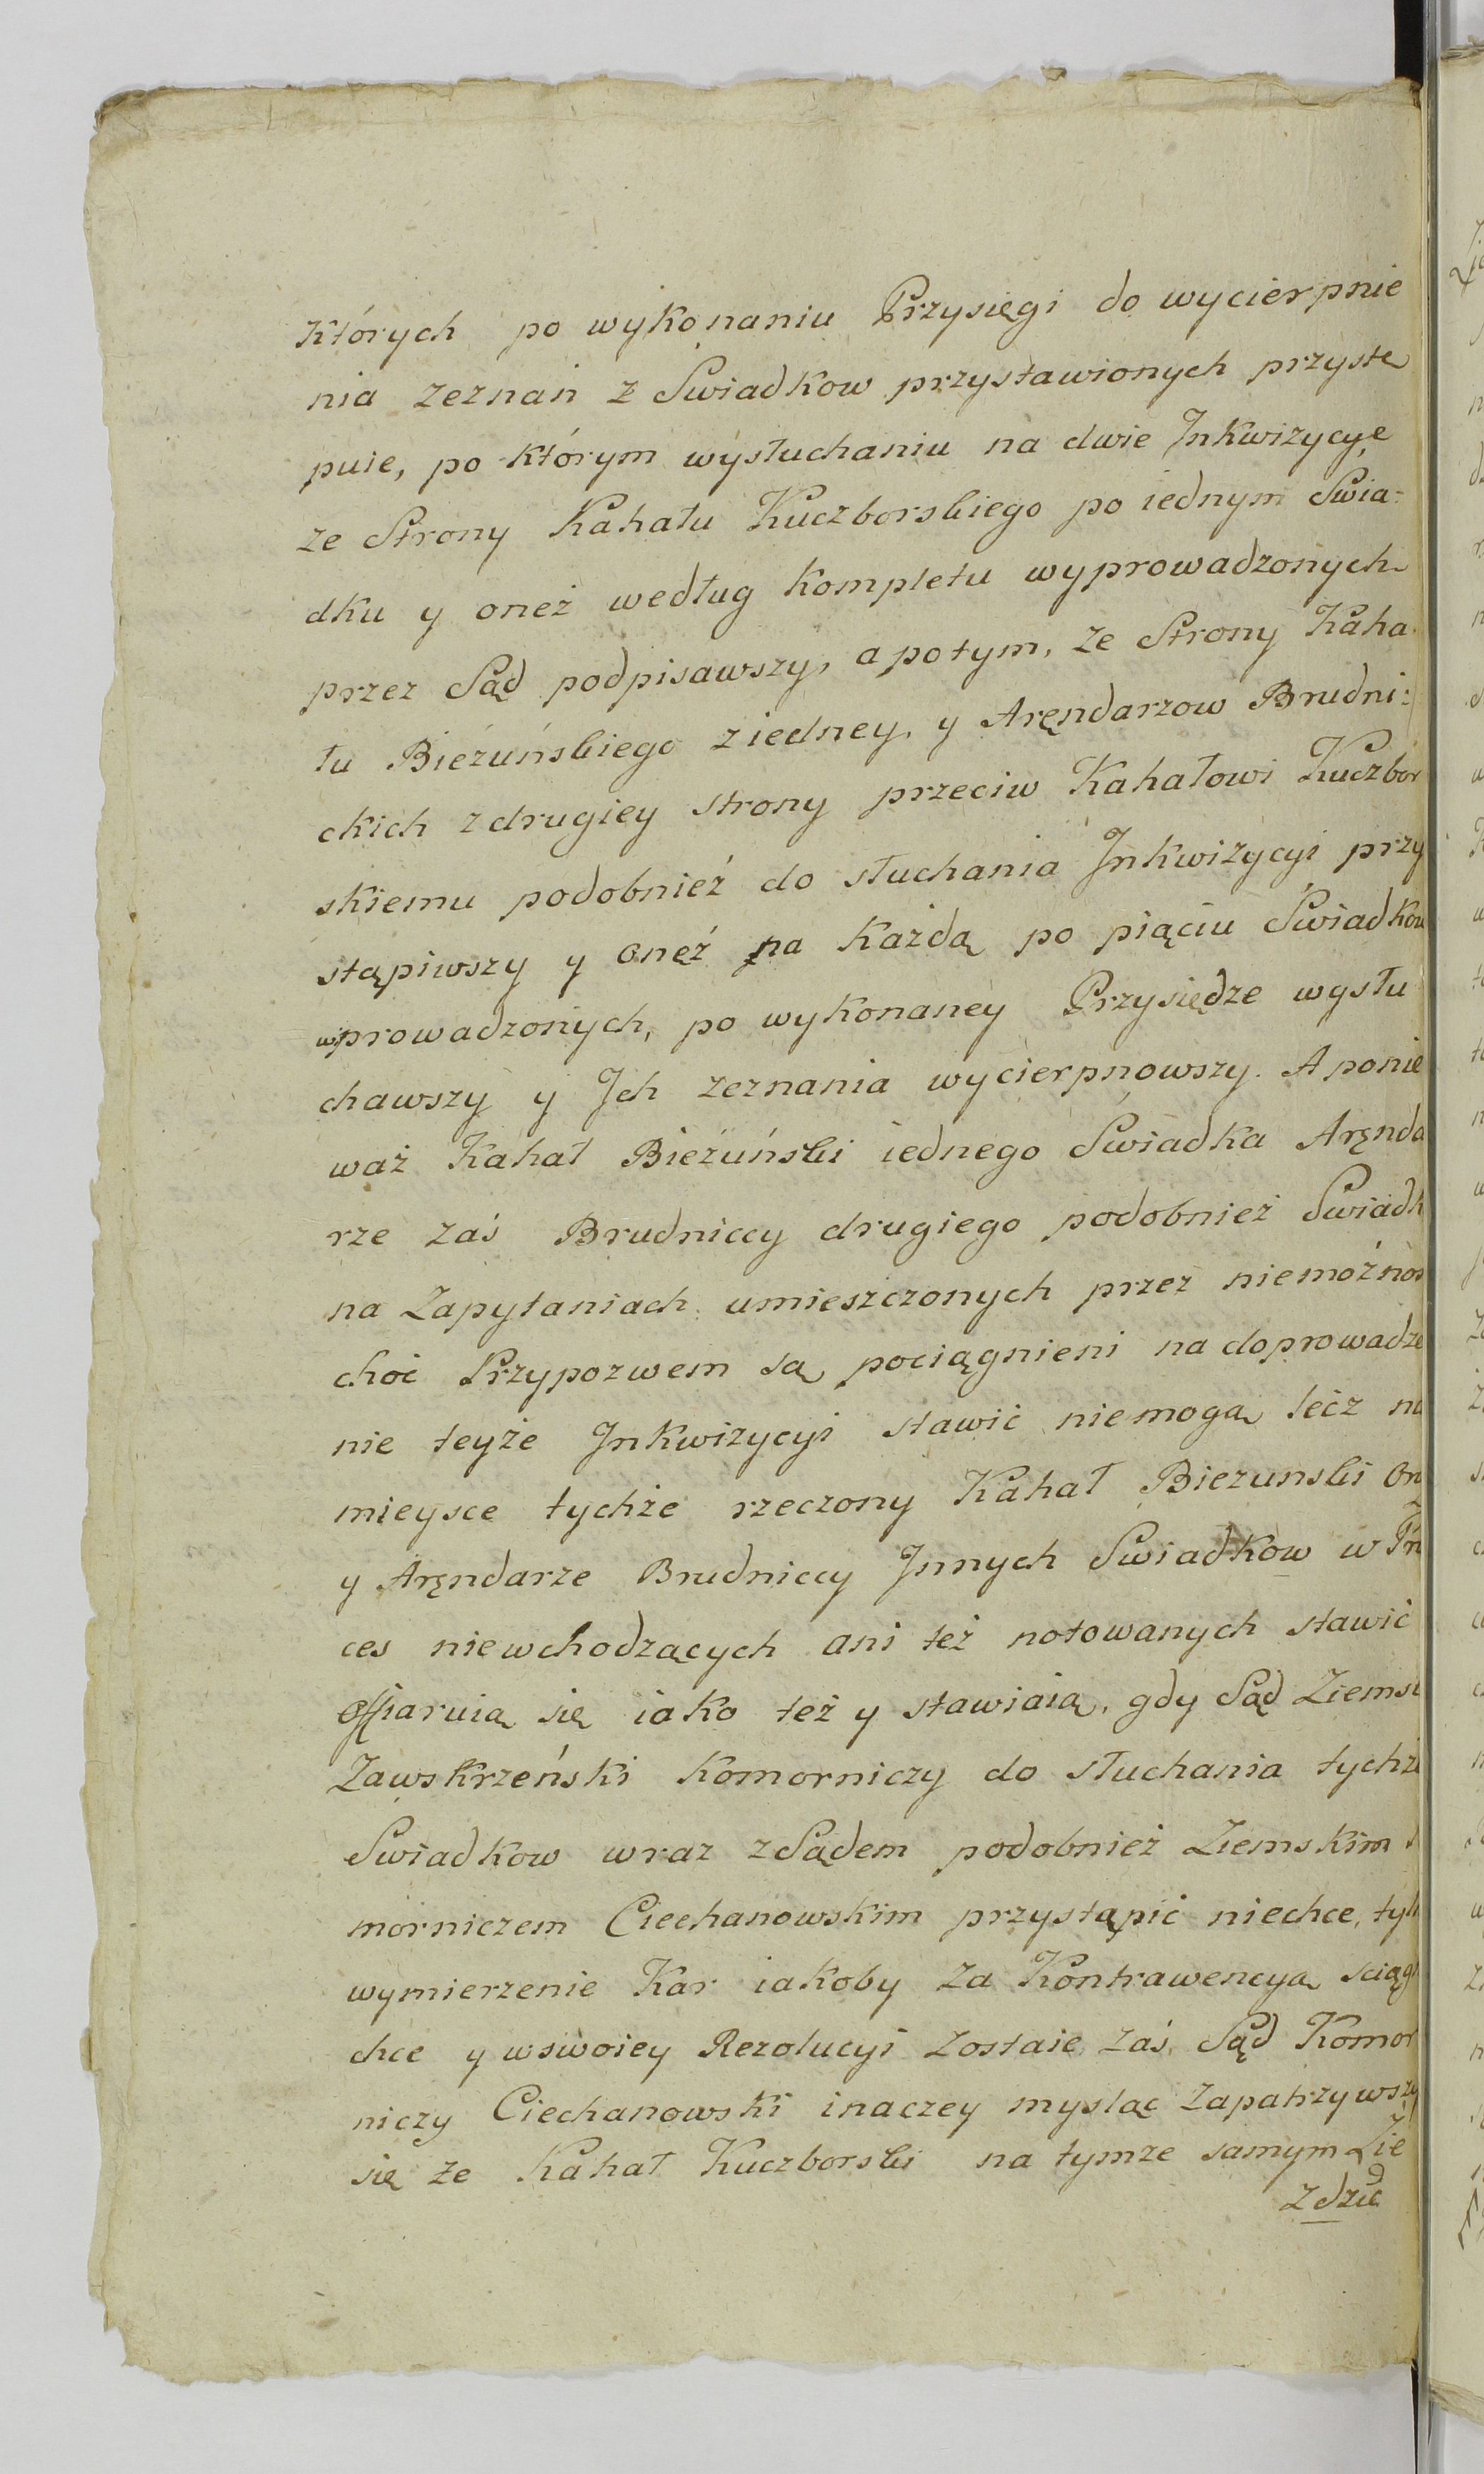 których po wykonaniu Przysięgi do wycierpnie
nia zeznań z Swiadkow przystawionych przystę
puie, po którym wysłuchaniu na dwie Jnkwizycye
ze Strony Kahału Kuczborskiego po iednym Swia=
dku y oneż według Kompletu wyprowadzonych
przez Sąd podpisawszy, a potym, ze Strony Kaha
łu Bieżuńskiego z iedney, y Aręndarzow Brudni=
ckich z drugiey strony przeciw Kahałowi Kuczbor
skiemu podobnież do słuchania Jnkwizycyi przy
stąpiwszy y oneż na Każdą po piąciu Swiadkow
wprowadzonych, po wykonaney Przysiędze wysłu
chawszy y Jch zeznania wycierpnowszy. A ponie
waż Kahał Bieżuński iednego Swiadka Aręnda
rze zaś Brudniccy drugiego podobnież Swiadk
na Zapytaniach umieszczonych przez niemożnos
choć Przypozwem są pociągnieni na doprowadze
nie teyże Jnkwizycyi stawić niemogą lecz na
mieysce tychże rzeczony Kahał Biezunski on
y Aręndarze Brudniccy Jnnych Swiadkow w Pr
ces niewchodzących ani też notowanych stawić
offiaruią się iako też y stawiaią, gdy Sąd Ziems
Zawskrzeński Komorniczy do słuchania tychże
Swiadkow wraz z Sądem podobnież Ziemskim
morniczem Ciechanowskim przystąpić niechce, tyl
wymierzenie Kar iakoby za Kontrawencyą sciąg
chce y w swoiey Rezolucyi Zostaie zaś Sąd Komor
niczy Ciechanowski inaczey mysląc Zapatrzywszy
się że Kahał Kuczborski na tymze samym Zie
Zdzie